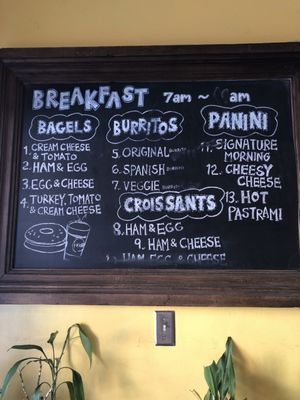 BREAKFAST 7am ~ am
BAGELS
1 CREAM CHEESE
& TOMATO
2. HAM & EGG
3. EGG & CHEESE
4. TURKEY, TOMATO
& CREAM CHEESE
BURRITOS
5. ORIGINAL BURRITO
6. SPANISH BURRITO
7. VEGGIE BURRITO
CROISSANTS
8. HAM & EGG
9. HAM & CHEESE
HAM EGG & CHEESE
PANINI
11. SIGNATURE
MORNING
12. CHEESY
CHEESE
13. HOT
PASTRAMI